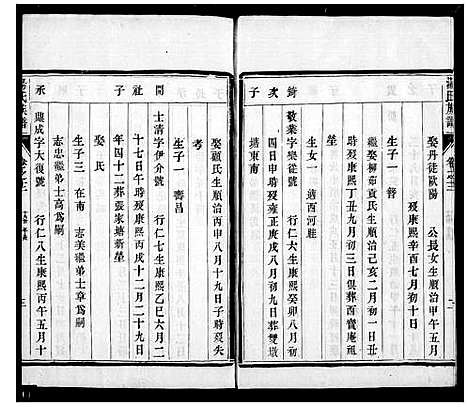 娶丹徒歐陽 公長女生順治甲午五月
歿康熙辛酉七月初十日
生子一 㬜
繼娶柳茹袁氏生順治己亥二月初一日丑
時歿康熙丁丑九月初三日俱葬西寶庵祖
錡
次
子
敬業字變徒號 行仁六生康熙癸卯八月初
四日申時歿雍正庚戌六月初九日葬雙墩
塘東南
生女一 適西河眭
娶顧氏生順治丙申八月十九日子時歿失
考
生子一 壽昌
開
社
子
士清字伊介號 行仁七生康熙乙巳六月二
十七日午時歿康熙丙戌十二月二十九日
年四十二葬張家塘新塋
娶 氏
生子三 在南 志美繼弟士章為嗣
志忠繼弟士高為嗣
承
鼎成字大復號 行仁八生康熙丙午五月十
湯氏族譜
卷之
三